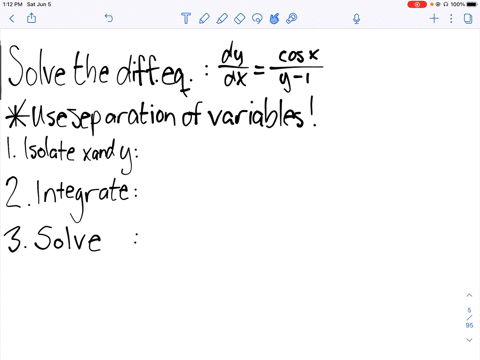 1:12 PM Sat Jun 5
100%
Solve the diff.eq. : dy/dx = cosx/y-1
*Use separation of variables!
1. Isolate x and y:
2. Integrate:
3. Solve :
5
/
95